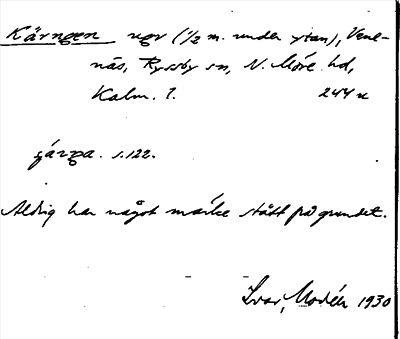 Kärngen ugv (1/2 m. under ytan), Vene-
näs, Ryssby sn, N. Möre hd,
Kalm. l. 244 u
gárga. s. 122.
Aldrig har något märke stått på grundet.
Ivar Modéer 1930